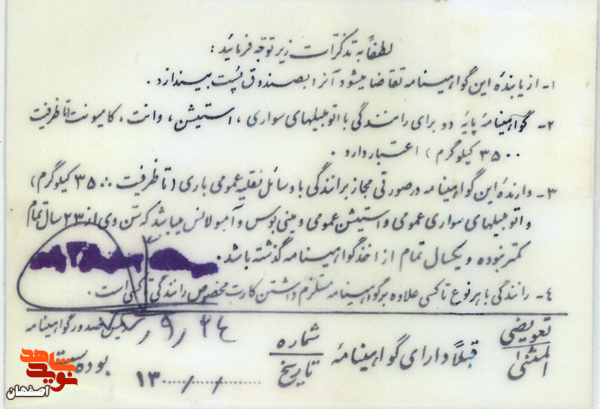 لطفاً به تذکرات زیر توجه فرمائید :
۱- از یابندهٔ این گواهینامه تقاضا میشود آنرا بصندوق پُست بیندازد .
۲- گواهینامهٔ پایهٔ دو برای رانندگی با اتومبیلهای سواری ، استیشن ، وانت ، کامیونت (تا ظرفیت
۳۵۰۰ کیلوگرم ) اعتبار دارد .
۳- دارندهٔ این گواهینامه در صورتی مجاز برانندگی با وسائل نقلیه عمومی باری ( تا ظرفیت ۳۵۰۰ کیلوگرم )
و اتومبیلهای سواری عمومی و استیشن عمومی و مینی بوس و آمبولانس میباشد که سن وی از ۲۳ سال تمام
کمتر نبوده و یکسال تمام از اخذ گواهینامه گذشته باشد .
۴- رانندگی با هر نوع تاکسی علاوه بر گواهینامه مستلزم داشتن کارت مخصوص رانندگی تاکسی است .
تعویضی
المثنی
قبلاً دارای گواهینامهٔ
شماره
تاریخ
۱۳۰۰۰/۰۰۰/۰۰۰
صدور گواهینامه
بوده
شاهد
نوید
اصفهان